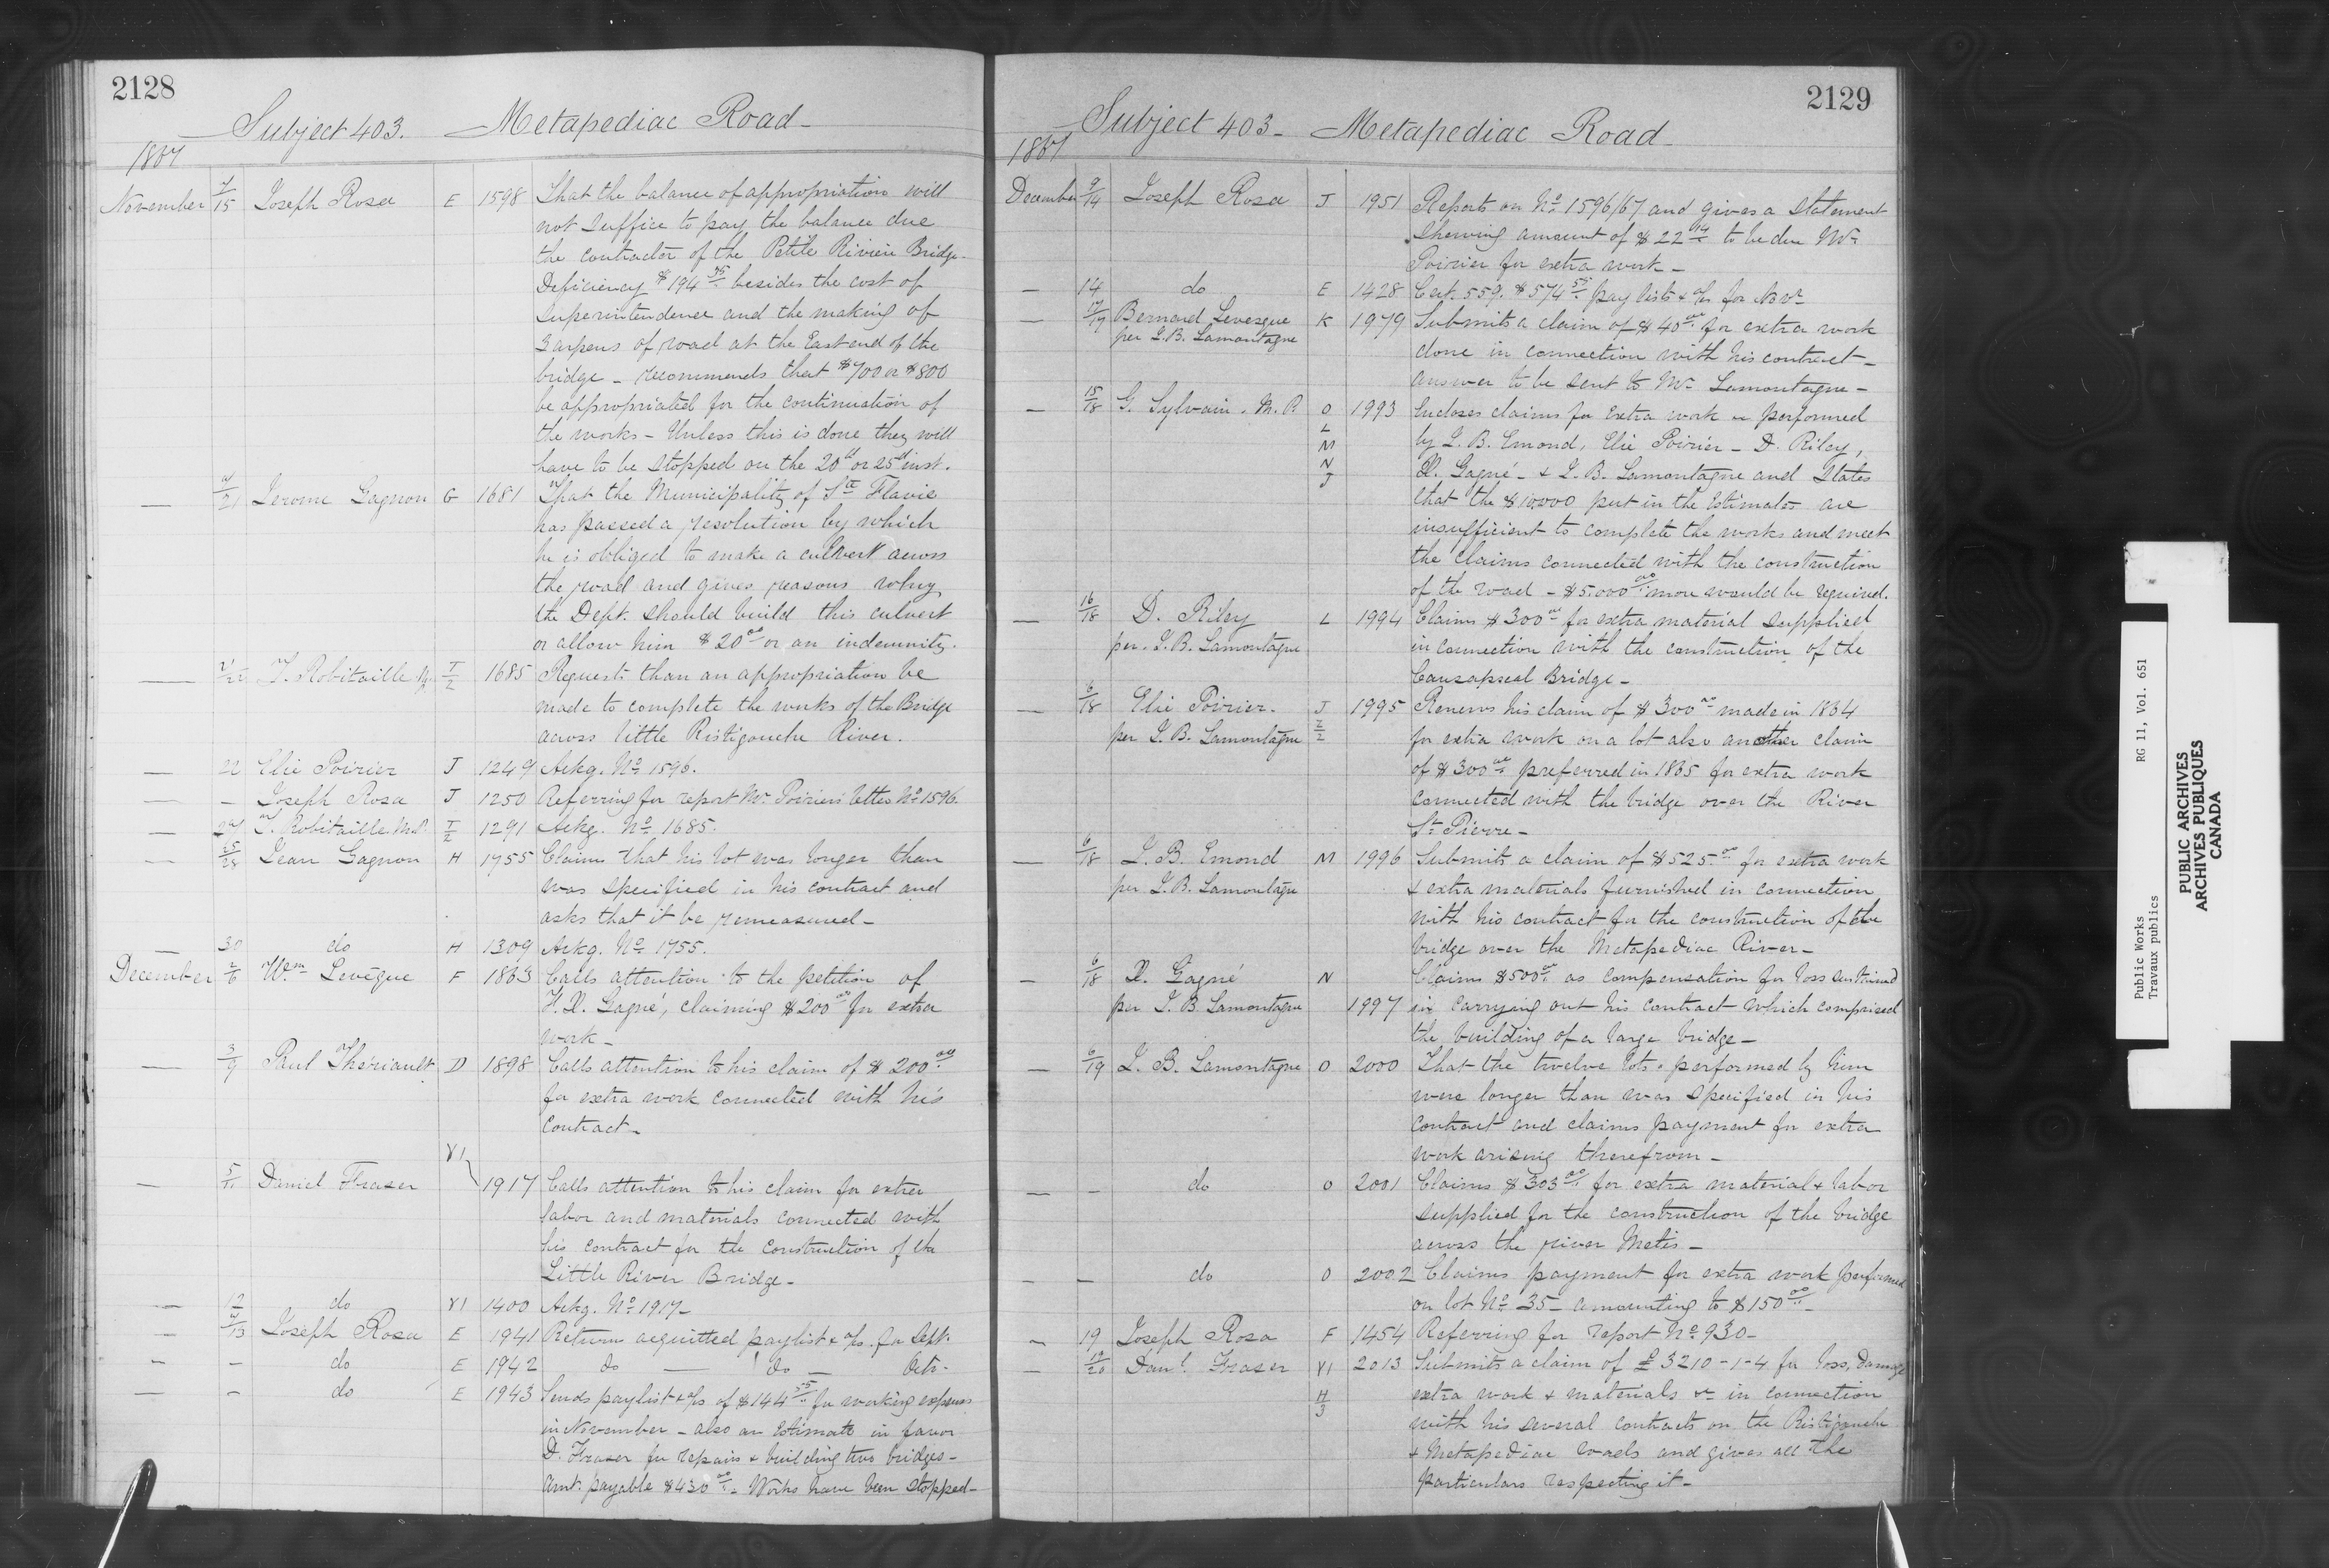 2128
Subject 403. Metapediac Road
1867
November 7/15 Joseph Rosa E 1598 That the balance of appropriation will
not suffice to pay the balance due
the contractor of the Petite Rivière Bridge.
Deficiency $194 75 besides the cost of
superintendence and the making of
3 arpens of road at the East end of the
bridge - recommends that $700 or $800
be appropriated for the continuation of
the works - Unless this is done they will
have to be stopped on the 20th or 25th inst.
Jerome Gagnon G 1681 That the Municipality of Ste Flavie
has passed a resolution by which
he is obliged to make a culvert across
the road and gives reasons why
the Dept. should build this culvert
or allow him $20 00 or an indemnity.
T. Robitaille M.P. T/2 1685 Requests than an appropriation be
made to complete the works of the Bridge
across little Ristigouche River.
22 Elie Poirier J 1249 Ackg. No 1596.
- Joseph Rosa J 1250 Referring for report Mr Poirier's letter No 1596.
T. Robitaille M.P. T/2 1291 Ackg. No 1685.
25/28 Jean Gagnon H 1755 Claims that his lot was longer than
was specified in his contract and
asks that it be remeasured -
30 do H 1309 Ackg. No 1755.
December 2/6 Wm Levêque F 1863 Calls attention to the petition of
F. X. Gagné, claiming $200 00 for extra
work -
3/9 Paul Theriault D 1898 Calls attention to his claim of $200 00
for extra work connected with his
contract -
Y1
5/11 Daniel Fraser 1917 Calls attention to his claim for extra
labor and materials connected with
his contract for the construction of the
Little River Bridge -
12 do Y1 1400 Ackg. No 1917 -
9/13 Joseph Rosa E 1941 Return acquitted paylist & a/cs. for Sept.
- - do E 1942 do do Octr -
- - do E 1943 Sends paylist & a/cs of $144 55 for working expenses
in November - also an Estimate in favor
D. Fraser for repairs & building two bridges -
Amt. payable $430 00 - Works have been stopped -
2129
Subject 403 - Metapediac Road
1867
December 9/14 Joseph Rosa J 1951 Reports on No 1596/67 and gives a statement
shewing amount of $22 14 to be due Mr
Poirier for extra work -
- 14 do E 1428 Cert. 559. $574 55 pay lists & a/cs for Novr
- 17/19 Bernard Levesque K 1979 Submits a claim of $40 00 for extra work
per J. B. Lamontagne
done in connection with his contract -
answer to be sent to Mr Lamontagne -
- 15/18 G. Sylvain. M. P. O 1993 Incloses claims for extra work performed
L
M by J. B. Emond, Elie Poirier - D. Riley,
N X. Gagné - & J. B. Lamontagne and states
J
that the $10,000 put in the Estimates are
insufficient to complete the works and meet
the claims connected with the construction
of the road - $5.000 00 more would be required.
- 16/18 D. Riley L 1994 Claims $300 00 for extra material supplied
per. J. B. Lamontagne in connection with the construction of the
Causapscal Bridge -
- 6/18 Elie Poirier. J 1995 Renews his claim of $300 00 made in 1864
per J. B. Lamontagne Z/2 for extra work on a lot also another claim
of $300 00 preferred in 1865 for extra work
connected with the bridge over the River
St Pierre -
- 6/18 J. B. Emond M 1996 Submits a claim of $525 00 for extra work
per J. B. Lamontagne & extra materials furnished in connection
with his contract for the construction of the
bridge over the Metapediac River -
- 6/18 X. Gagné N Claims $500 00 as compensation for loss sustained
per J. B. Lamontagne 1997 in carrying out his contract which comprised
the building of a large bridge -
- 6/19 J. B. Lamontagne O 2000 That the twelve lots performed by him
were longer than was specified in his
contract and claims payment for extra
work arising therefrom -
- - do O 2001 Claims $303 00 for extra material & labor
supplied for the construction of the bridge
across the river Metis -
- - do O 2002 Claims payment for extra work performed
on lot No 35 - amounting to $150 00 -
- 19 Joseph Rosa F 1454 Referring for report No 930 -
- 19/20 Danl. Fraser Y1 2013 Submits a claim of £3210-1-4 for loss, damage
H/3 extra work & materials &c in connection
with his several contracts on the Ristigouche
& Metapediac roads and gives all the
particulars respecting it -
Public Works
Travaux publics
RG 11, Vol. 651
PUBLIC ARCHIVES
ARCHIVES PUBLIQUES
CANADA